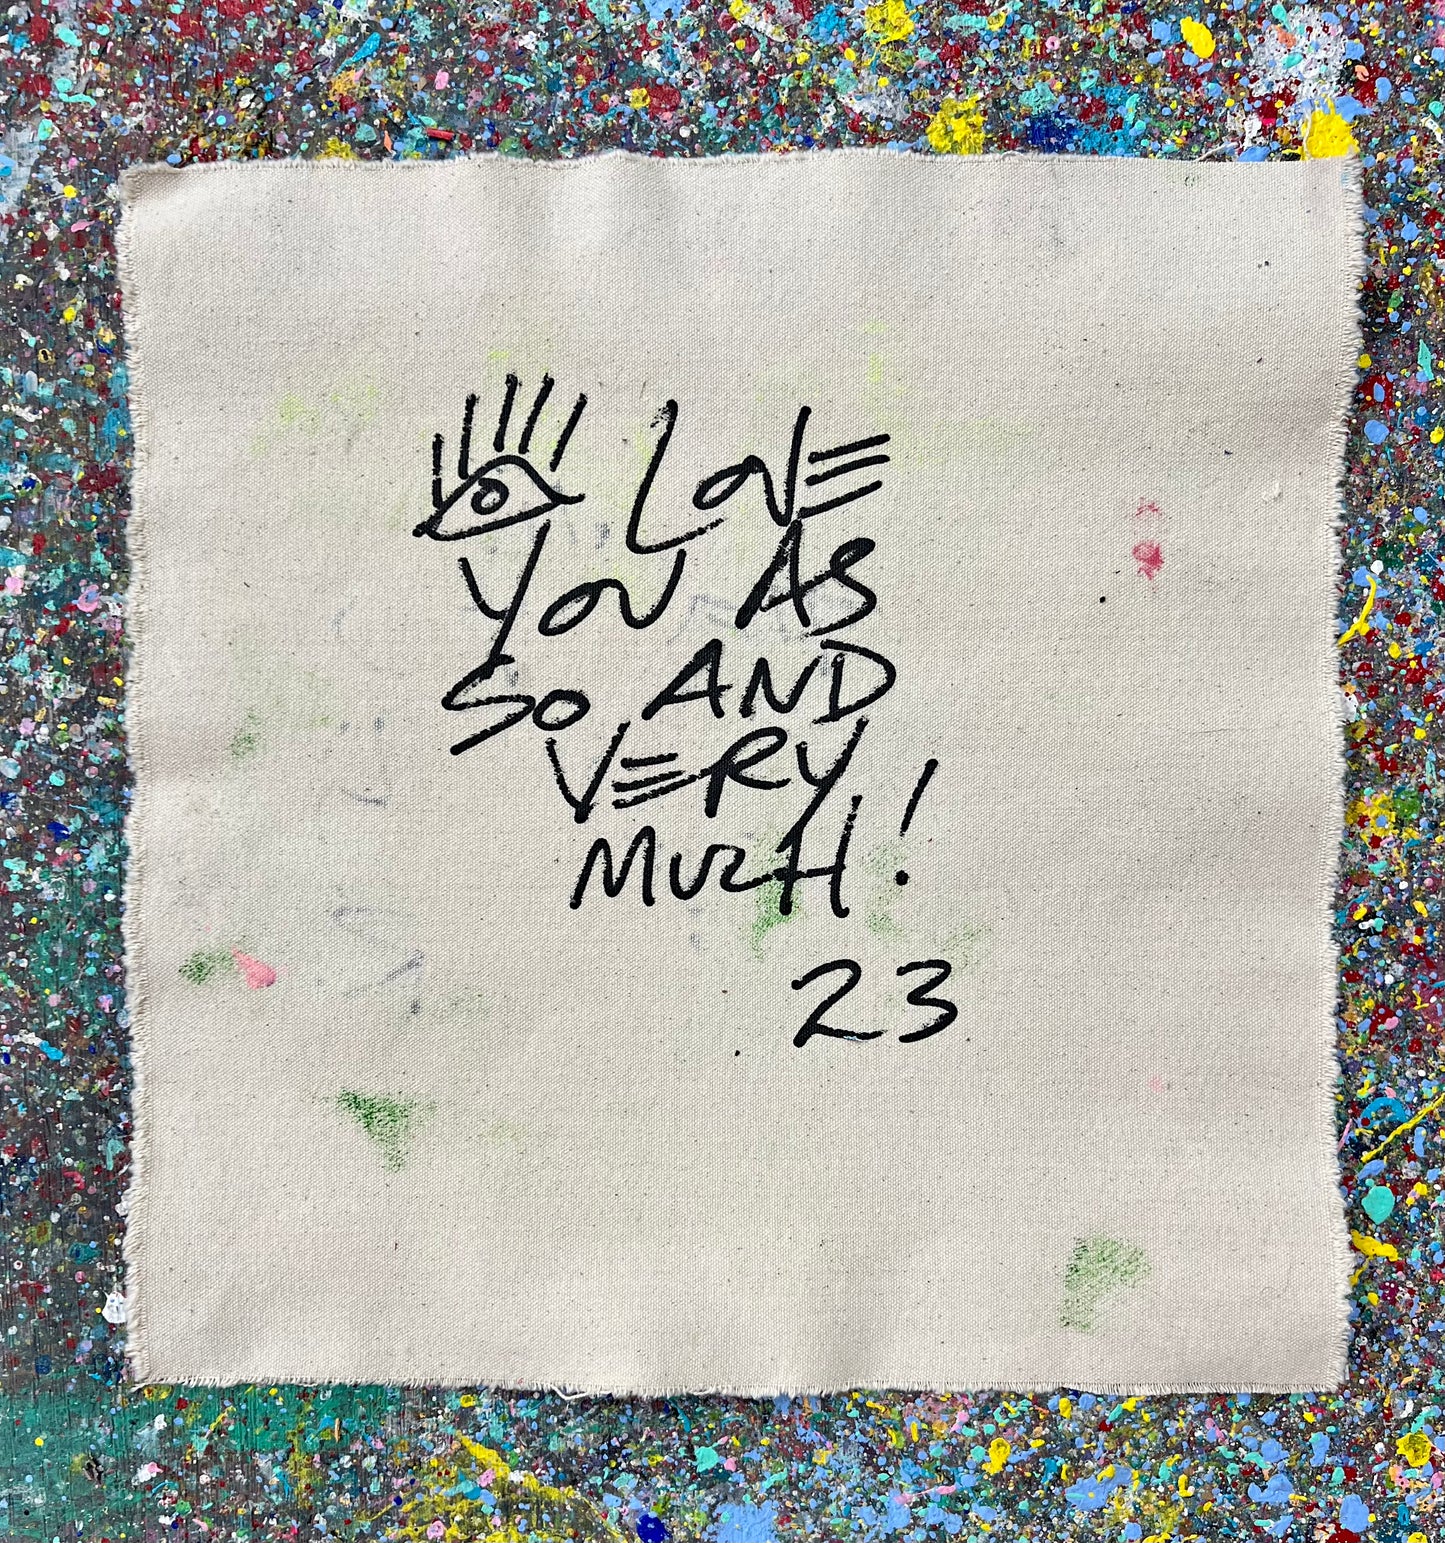 LOVE
YOU AS
SO AND
VERY
MUCH!
23